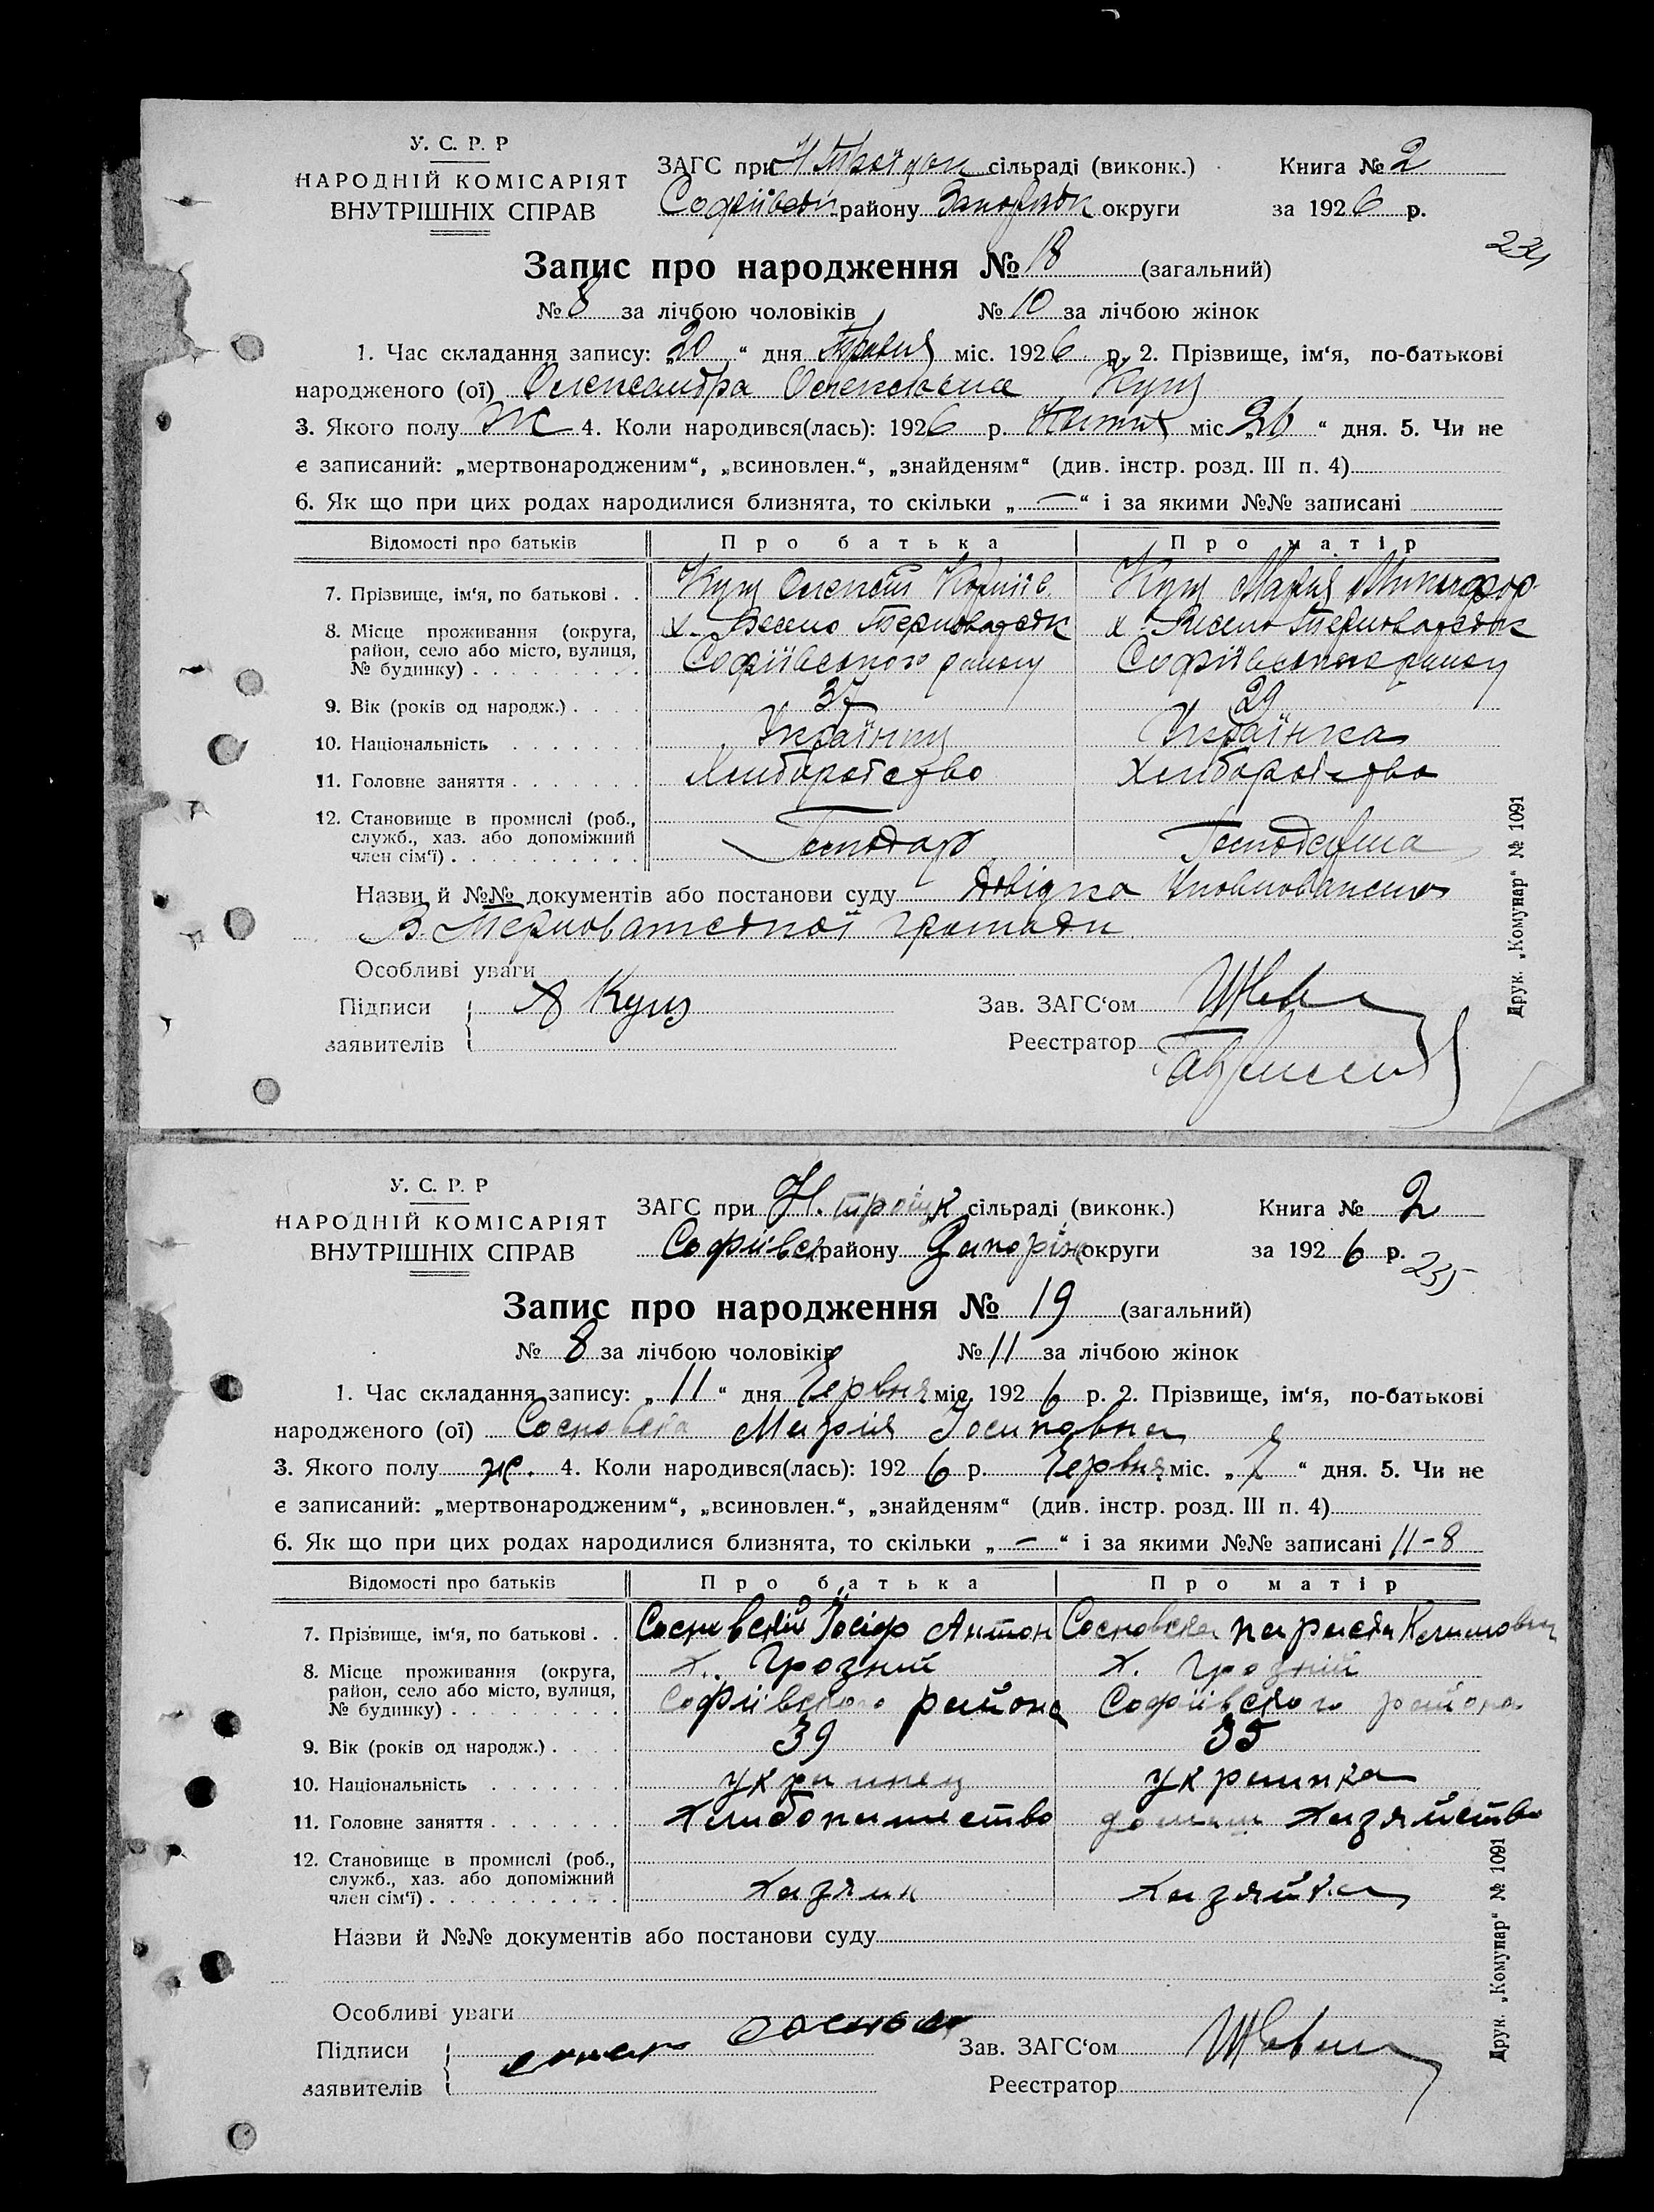 У. С. Р. Р
НАРОДНІЙ КОМІСАРІЯТ
ВНУТРІШНІХ СПРАВ
ЗАГС при Н сільраді (виконк.)
Книга № 2
району округи
за 1926 р.
Запис про народження № 18 (загальний)
№ 8 за лічбою чоловіків № 10 за лічбою жінок
1. Час складання запису: „20“ дня Травня міс. 1926 р. 2. Прізвище, ім‘я, по-батькові
народженого (ої) Олександра Кущ
3. Якого полу Ж 4. Коли народився(лась): 1926 р. міс. „26“ дня. 5. Чи не
є записаний: „мертвонародженим“, „всиновлен.“, „знайденям“ (див. інстр. розд. III п. 4)
6. Як що при цих родах народилися близнята, то скільки „—“ і за якими №№ записані
Відомості про батьків Про батька Про матір
7. Прізвище, ім‘я, по батькові . . Кущ Кущ Мария
8. Місце проживання (округа, х. х
район, село або місто, вулиця, Софіївського району Софіївського району
№ будинку) . . . . . . . . .
9. Вік (років од народж.) . . . . 37 29
10. Національність . . . . . . . Українец Українка
11. Головне заняття . . . . . . . Хлиборобство Хлиборобство
12. Становище в промислі (роб.,
служб., хаз. або допоміжний Господар
член сім‘ї) . . . . . . . . . .
Назви й №№ документів або постанови суду Довідка
громади
Особливі уваги
Підписи Кущ Зав. ЗАГС‘ом
заявителів Реєстратор
Друк. „Комунар“ № 1091
У. С. Р. Р
НАРОДНІЙ КОМІСАРІЯТ
ВНУТРІШНІХ СПРАВ
ЗАГС при Н. троїцк сільраді (виконк.)
Книга № 2
Софиівск району Запоріж округи
за 1926 р.
235
Запис про народження № 19 (загальний)
№ 8 за лічбою чоловіків № 11 за лічбою жінок
1. Час складання запису: „11“ дня Червня міс. 1926 р. 2. Прізвище, ім‘я, по-батькові
народженого (ої) Сосновска Мария Иосиповна
3. Якого полу ж. 4. Коли народився(лась): 1926 р. Червня міс. „7“ дня. 5. Чи не
є записаний: „мертвонародженим“, „всиновлен.“, „знайденям“ (див. інстр. розд. III п. 4)
6. Як що при цих родах народилися близнята, то скільки „—“ і за якими №№ записані 11-8
Відомості про батьків Про батька Про матір
7. Прізвище, ім‘я, по батькові . . Сосновский Йосіф Антон Сосновска параска
8. Місце проживання (округа, х. Грозний х. Грозний
район, село або місто, вулиця, Софиівского района Софиівского района
№ будинку) . . . . . . . . .
9. Вік (років од народж.) . . . . 39 35
10. Національність . . . . . . . украинец украинка
11. Головне заняття . . . . . . . Хлибопашество домаш хазяйство
12. Становище в промислі (роб.,
служб., хаз. або допоміжний хазяин хазяйка
член сім‘ї) . . . . . . . . . .
Назви й №№ документів або постанови суду
Особливі уваги
Підписи Зав. ЗАГС‘ом
заявителів Реєстратор
Друк. „Комунар“ № 1091